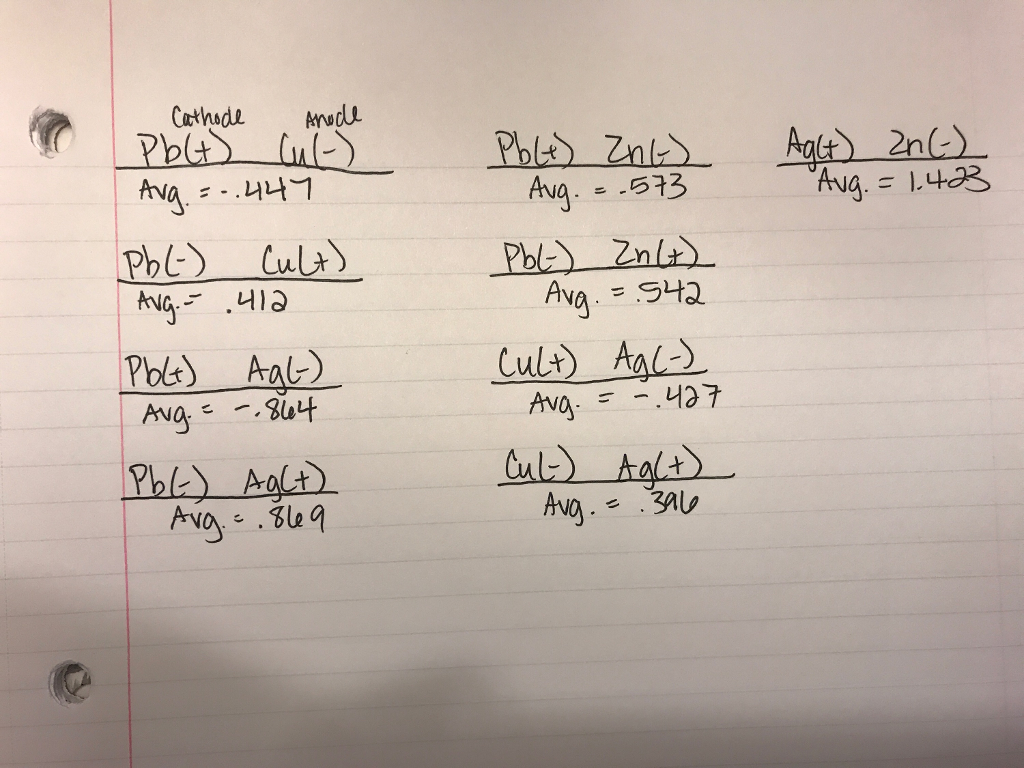 Cathode Anode
Pb(+) Cu(-)
Avg. = -.447
Pb(-) Cu(+)
Avg. = .412
Pb(+) Ag(-)
Avg. = -.864
Pb(-) Ag(+)
Avg. = .869
Pb(+) Zn(-)
Avg. = .573
Pb(-) Zn(+)
Avg. = .542
Cu(+) Ag(-)
Avg. = -.427
Cu(-) Ag(+)
Avg. = .396
Ag(+) Zn(-)
Avg. = 1.423